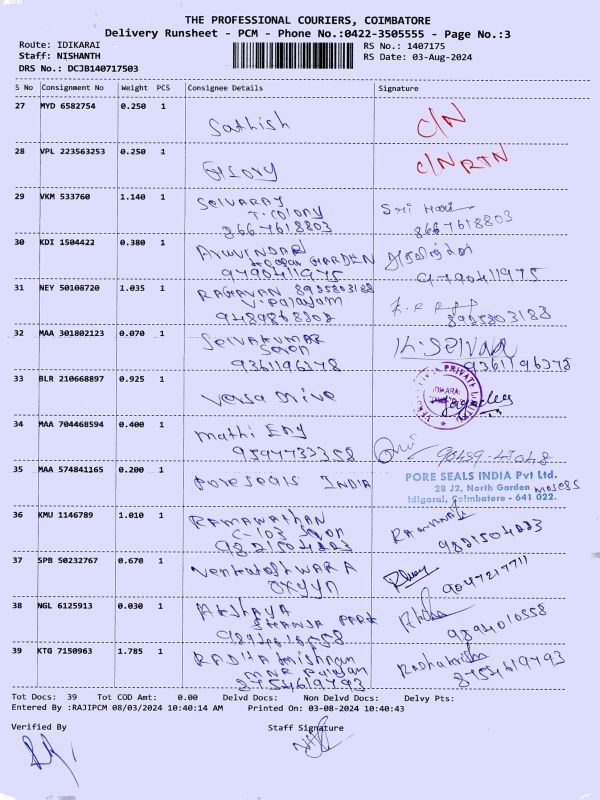 THE PROFESSIONAL COURIERS, COIMBATORE
Delivery Runsheet - PCM - Phone No.:0422-3505555 - Page No.:3
Route: IDIKARAI
RS No.: 1407175
Staff: NISHANTH
RS Date: 03-Aug-2024
DRS No.: DCJB140717503
S No Consignment No Weight PCS Consignee Details Signature
27 MYD 6582754 0.250 1
Sathish C/N
28 VPL 223563253 0.250 1
Glory C/N RTN
29 VKM 533760 1.140 1
SELVARAJ Sri Hari
T. Colony
8667618803 8667618803
30 KDI 1504422 0.380 1
GARDEN
9790411975 9790411975
31 NEY 50108720 1.035 1
RAGAVAN 8925803188
V. Palayam
9489868808 8925803188
32 MAA 301802123 0.070 1
SELVAKUMAR K. Selvaa
9361196378 9361196378
33 BLR 210668897 0.925 1
Versa Drive
PRIVATE LIMITED
IDIKARAI
34 MAA 704468594 0.400 1
Mathi Eng
9594733358
35 MAA 574841165 0.200 1
PORE SEALS INDIA
PORE SEALS INDIA Pvt Ltd.
28 J2, North Garden
Idigarai, Coimbatore - 641 022.
36 KMU 1146789 1.010 1
C-103
9821504883 9821504883
37 SPB 50232767 0.670 1
9047217711
38 NGL 6125913 0.030 1
AKSHAYA
PARK
9894010558
39 KTG 7150963 1.785 1
RADHAkrishnan Radhakrishn
8754619793 8754619793
Tot Docs: 39 Tot COD Amt: 0.00 Delvd Docs: Non Delvd Docs: Delvy Pts:
Entered By :RAJIPCM 08/03/2024 10:40:14 AM Printed On: 03-08-2024 10:40:43
Verified By Staff Signature